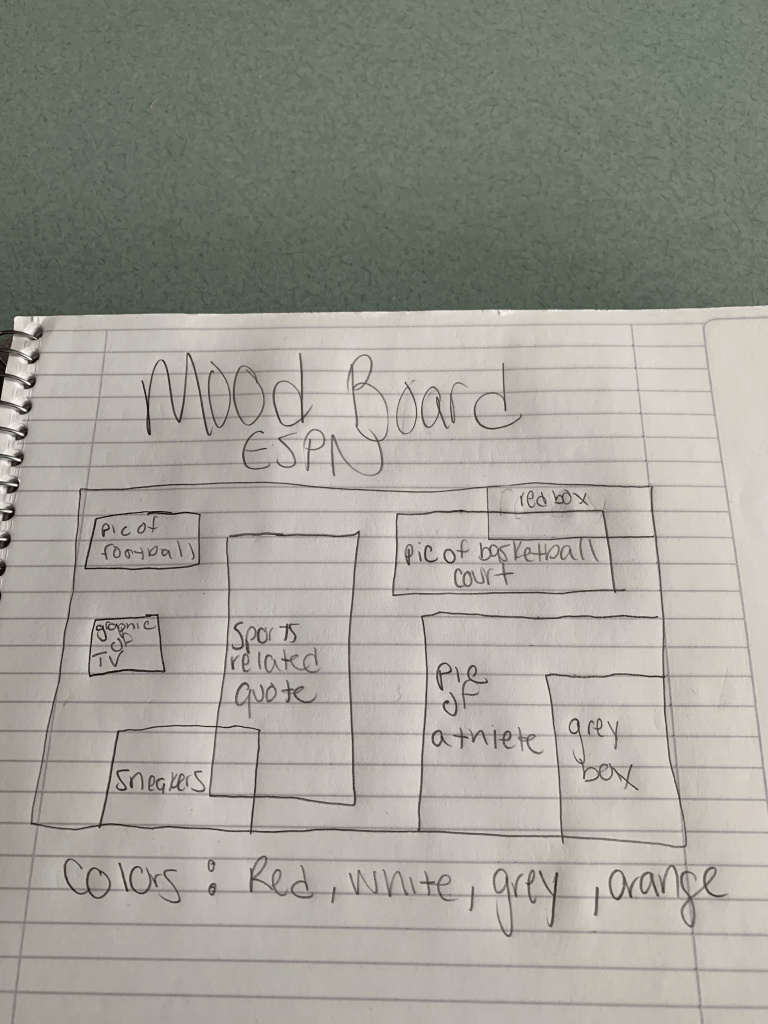 Mood Board
ESPN
red box
pic of
football
pic of basketball
court
graphic
of
TV
Sports
related
quote
pic
of
athlete
grey
box
sneakers
Colors : Red, white, grey, orange